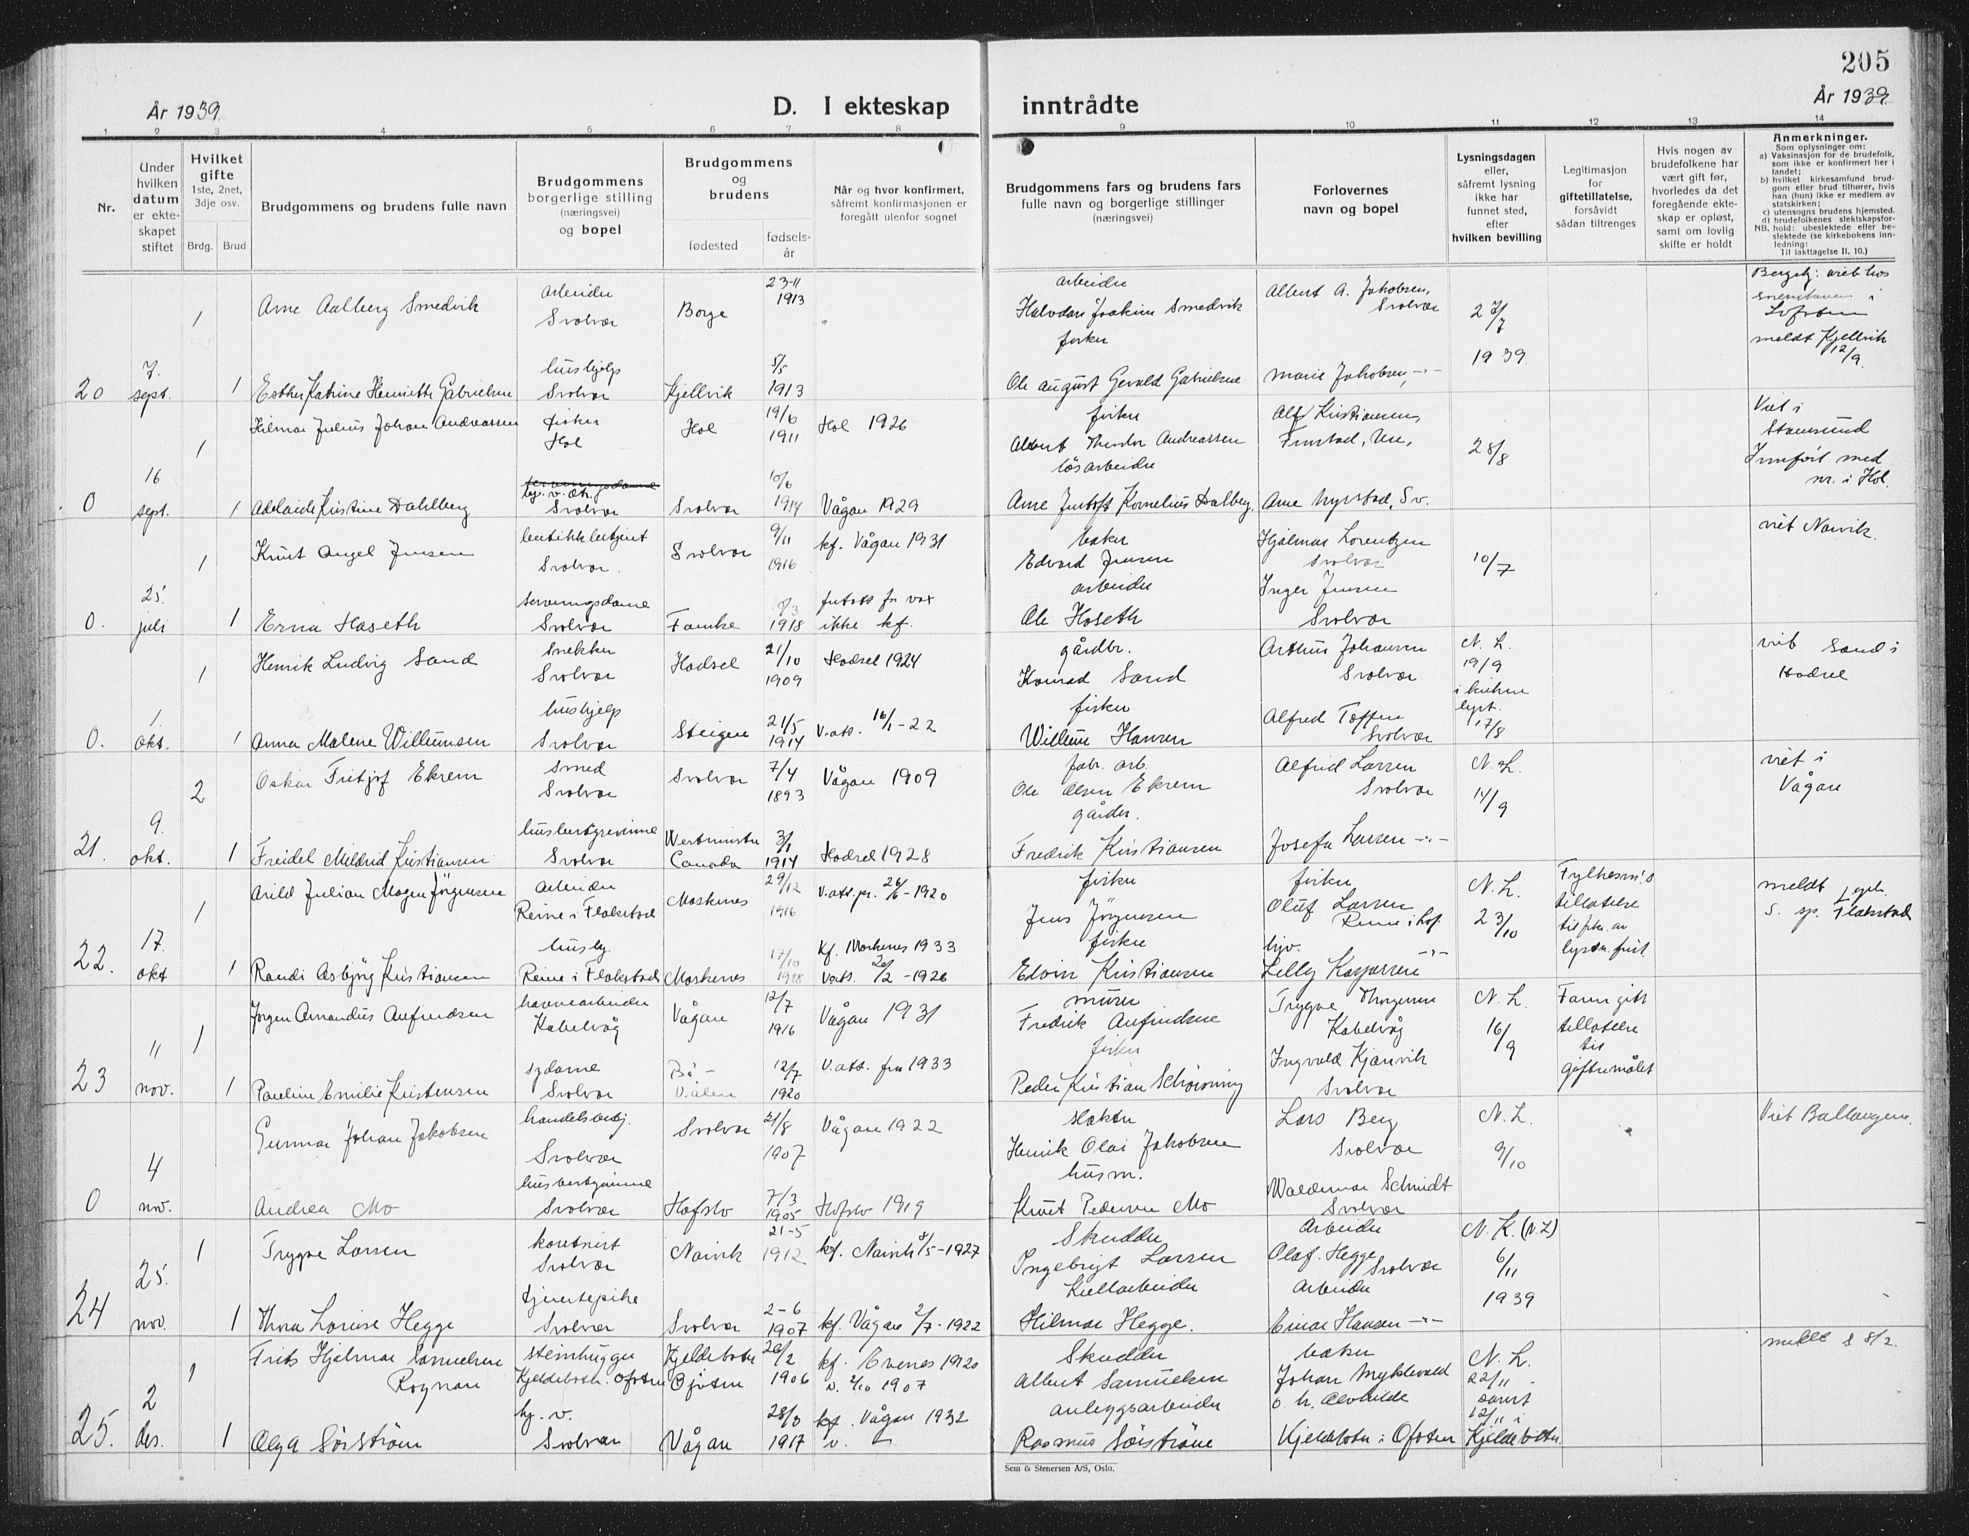 205
År 1939
D. I ekteskap inntrådte
År 1939
1 2 3 4 5 6 7 8 9 10 11 12 13 14
Nr.
Under hvilken datum er ekteskapet stiftet
Hvilket gifte
1ste, 2net, 3dje osv.
Brdg. Brud
Brudgommens og brudens fulle navn
Brudgommens borgerlige stilling (næringsvei) og bopel
Brudgommens og brudens
fødested
fødselsår
Når og hvor konfirmert, såfremt konfirmasjonen er foregått utenfor sognet
Brudgommens fars og brudens fars fulle navn og borgerlige stillinger (næringsvei)
Forlovernes navn og bopel
Lysningsdagen eller, såfremt lysning ikke har funnet sted, efter hvilken bevilling
Legitimasjon for giftetillatelse, forsåvidt sådan tiltrenges
Hvis nogen av brudefolkene har vært gift før, hvorledes da det foregående ekteskap er opløst, samt om lovlig skifte er holdt
Anmerkninger.
Som oplysninger om:
a) Vaksinasjon for de brudefolk, som ikke er konfirmert her i landet;
b) hvilket kirkesamfund brudgom eller brud tilhører, hvis han (hun) ikke er medlem av statskirken;
c) utensogns brudens hjemsted.
d) brudefolkenes slektskapsforhold: ubeslektede eller beslektede (se kirkebokens innledning:
NB.
Til iakttagelse II. 10.)
1 Arne Aalberg Smedvik arbeider Svolvær Borge 23-11 1913 arbeider Halvdan Joakim Smedvik Albert A. Jakobsen, Svolvær 27/7 1939
meldt Kjellvik 12/9.
20 7. sept. 1 Esther Katrine Henriette Gabrielsen hushjelp Svolvær Kjellvik 5/5 1913 fisker Ole August Gerald Gabrielsen Marie Jakobsen, -"-
1 Hilmar Julius Johan Andreassen fisker Hol Hol 19/6 1911 Hol 1926 fisker Albert Theodor Andreassen Alf Kristiansen, 28/8 Viet i Stamsund Innført med nr. i Hol.
0 16 sept. 1 Adelaide Kristine Dahlberg Svolvær Svolvær 10/6 1914 Vågan 1929 løsarbeider Arne Kornelius Dalberg. Arne Nyrstad, Sv.
1 Knut Angel Jensen Svolvær. Svolvær 9/11 1916 kf. Vågan 1931 baker Edvard Jensen Hjalmar Lorentzen Svolvær 10/7 viet Narvik.
0. 25. juli 1 Erna Haseth serveringsdame Svolvær 1918 ikke kf. arbeider Ole Haseth Inger Jensen Svolvær
1 Henrik Ludvig Sand snekker Svolvær Hadsel 21/10 1909 Hadsel 1924 gårdbr. Konrad Sand Arthur Johansen Svolvær N. L. 19/9 viet Sand i Hadsel
0. 1. okt. 1 Anna Malene Willumsen hushjelp Svolvær Steigen 21/5 1914 V. att. 16/1-22 fisker Willum Hansen Alfred Toften Svolvær i kirken lyst. 17/8
2 Oskar Fritjof Ekrem smed Svolvær Svolvær 7/4 1893 Vågan 1909 fabr. arb. Ole Olsen Ekrem Alfred Larsen Svolvær N. L. 14/9 viet i Vågan
21. 9. okt. 1 Freidel Meldrid Kristiansen husbestyrerinne Svolvær Westminster Canada 3/1 1914 Hadsel 1928 gårdbr. Fredrik Kristiansen Josefa Larsen -"-
1 Arild Julian Magnor Jørgensen arbeider Reine i Flakstad Moskenes 29/12 1916 V. att. pr. 26/6-1920 fisker Jens Jørgensen fisker Oluf Larsen Reine i Lof. N. L. 23/10 Fylkesm's tillatelse meldt S. sp. Flakstad
22. 17. okt 1 Randi Asbjørg Kristiansen hushj. Reine i Flakstad Moskenes 17/10 1918 Kf. Moskenes 1933 Vatt. 20/2-1926 fisker Edvin Kristiansen hjv. Lelly Kaspersen -"-
1 Jørgen Amandus Anfindsen havnearbeider Kabelvåg Vågan 12/7 1916 Vågan 1931 murer Fredrik Anfindsen Trygve Thorgersen Kabelvåg N. L. 16/9 Faren gitt tillatelse til giftermålet
23 11 nov. 1 Pauline Emilie Kristensen sydame Svolvær Bø - 12/7 1920 V. att. fra 1933 fisker Peder Kristian Schjønning Ingvald Kjønvik Svolvær
1 Gunnar Johan Jakobsen handelsbetj. Svolvær Svolvær 31/8 1907 Vågan 1922 slakter Henrik Olai Jakobsen Lars Berg Svolvær N. L. 9/10 Viet Ballangen.
0 4 nov. 1 Andrea Mo husbestyrinne Svolvær Hafslo 7/3 1905 Hafslo 1919 husm. Knut Pedersen Mo Waldemar Schmidt Svolvær
1 Trygve Larsen Svolvær Narvik 21-5 1912 kf. Narvik 8/5-1927 Skredder Ingebrigt Larsen Arbeider Olaf. Hegge Svolvær N. K. (N. L) 6/11 1939
24 25. nov. 1 Thora Lovise Hegge tjenestepike Svolvær Svolvær 2-6 1907 kf. Vågan 2/7-1922 Kullarbeider Hilmar Hegge. Arbeider Einar Hansen -"-
1 Frits Hjelmar Samuelsen Rognan steinhugger Kjeldebotn. Ofoten Kjeldebotn Ofoten 20/2 1906 kf. Evenes 1920 v. 2/10 1907 Skredder Albert Samuelsen baker Johan Myklevold o. h. Alvhilde N. L. 22/11 meldt 8/2.
25. 2 des. 1 Olga Sørstrøm hj. v. Svolvær Vågan 28/3 1917 kf. Vågan 1932 v. — anleggsarbeider Rasmus Sørstrøm Kjeldebotn i Ofoten 12/11 i Kjeldebotn.
Sem & Stenersen A/S, Oslo.